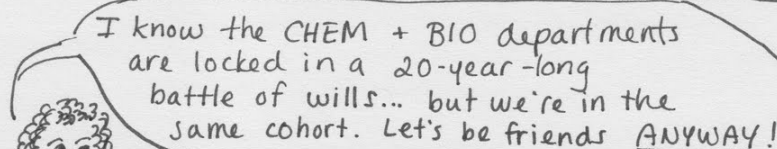 I know the CHEM + BIO departments
are locked in a 20-year-long
battle of wills... but we're in the
same cohort. Let's be friends ANYWAY!